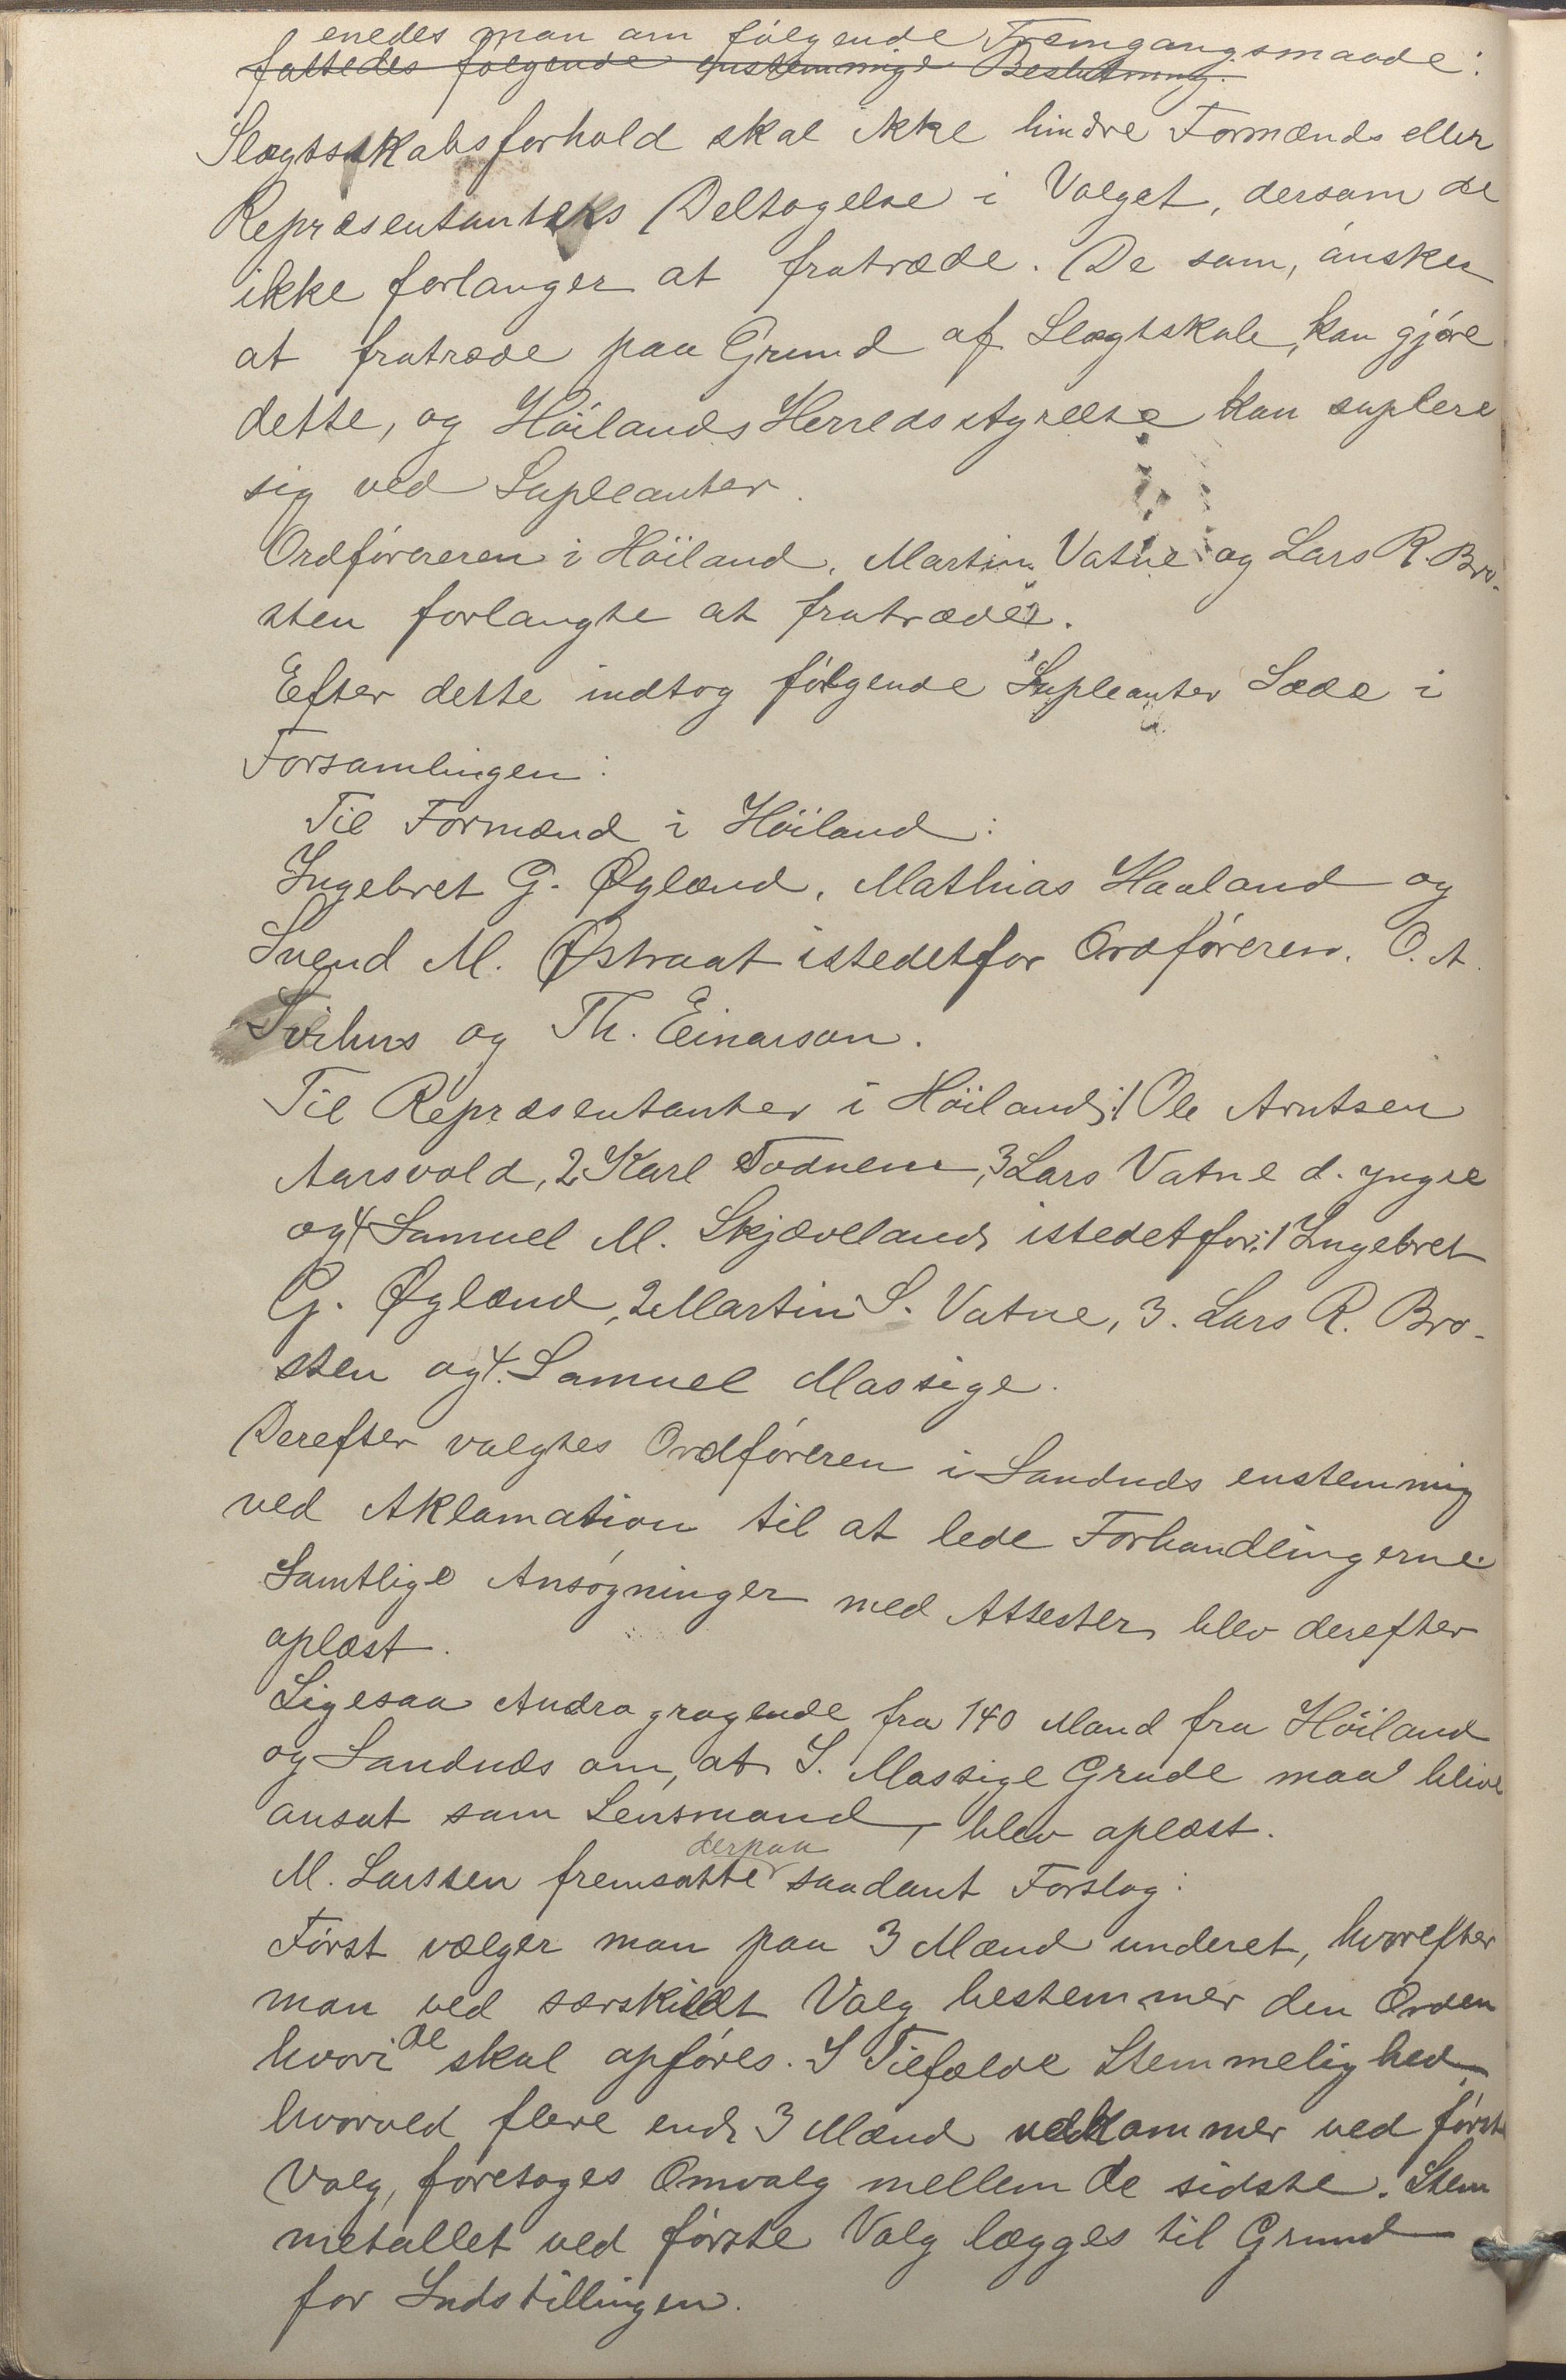 enedes man om følgende Fremgangsmaade:
fattedes følgende enstemmige Beslutning:
Slægtsskabsforhold skal ikke hindre Formænds eller
Repræsentanters Deltagelse i Valget, dersom de
ikke forlanger at fratræde. De som, ønsker
at fratræde paa Grund af Slægtskab, kan gjøre
dette, og Höilands Herredsstyrelse kan suplere
sig ved Supleanter.
Ordføreren i Höiland, Martin Vatne og Lars R. Bro-
sten forlangte at fratræde.
Efter dette indtog følgende Supleanter Sæde i
Forsamlingen:
Til Formænd i Höiland:
Ingebret G. Øglænd, Mathias Haaland og
Svend M. Østraat istedetfor Ordføreren, O. A.
Tvihus og Th. Einarson.
Til Repræsentanter i Höiland: 1 Ole Arntsen
Aarsvold, 2 Karl Todnem, 3 Lars Vatne d. yngre
og 4 Samuel M. Skjæveland, istedetfor: 1 Ingebret
G. Øglænd, 2 Martin S. Vatne, 3. Lars R. Bro-
sten og 4. Samuel Massige.
Derefter valgtes Ordføreren i Sandnæs enstemmig
ved Aklamation til at lede Forhandlingerne.
Samtlige Ansøgninger med Attester blev derefter
oplæst.
Ligesaa Andragragende fra 140 Mand fra Höiland
og Sandnæs om, at S. Massige Grude maa blive
ansat som Lensmand, blev oplæst.
M. Larssen fremsatte derpaa saadant Forslag:
Først vælger man paa 3 Mænd underet, hvorefter
man ved særskildt Valg bestemmer den Orden
hvori de skal opføres. I Tilfælde Stemmelighed
hvorved flere end 3 Mænd udkommer ved første
Valg, foretages Omvalg mellem de sidste. Stem
metallet ved første Valg lægges til Grund
for Indstillingen.